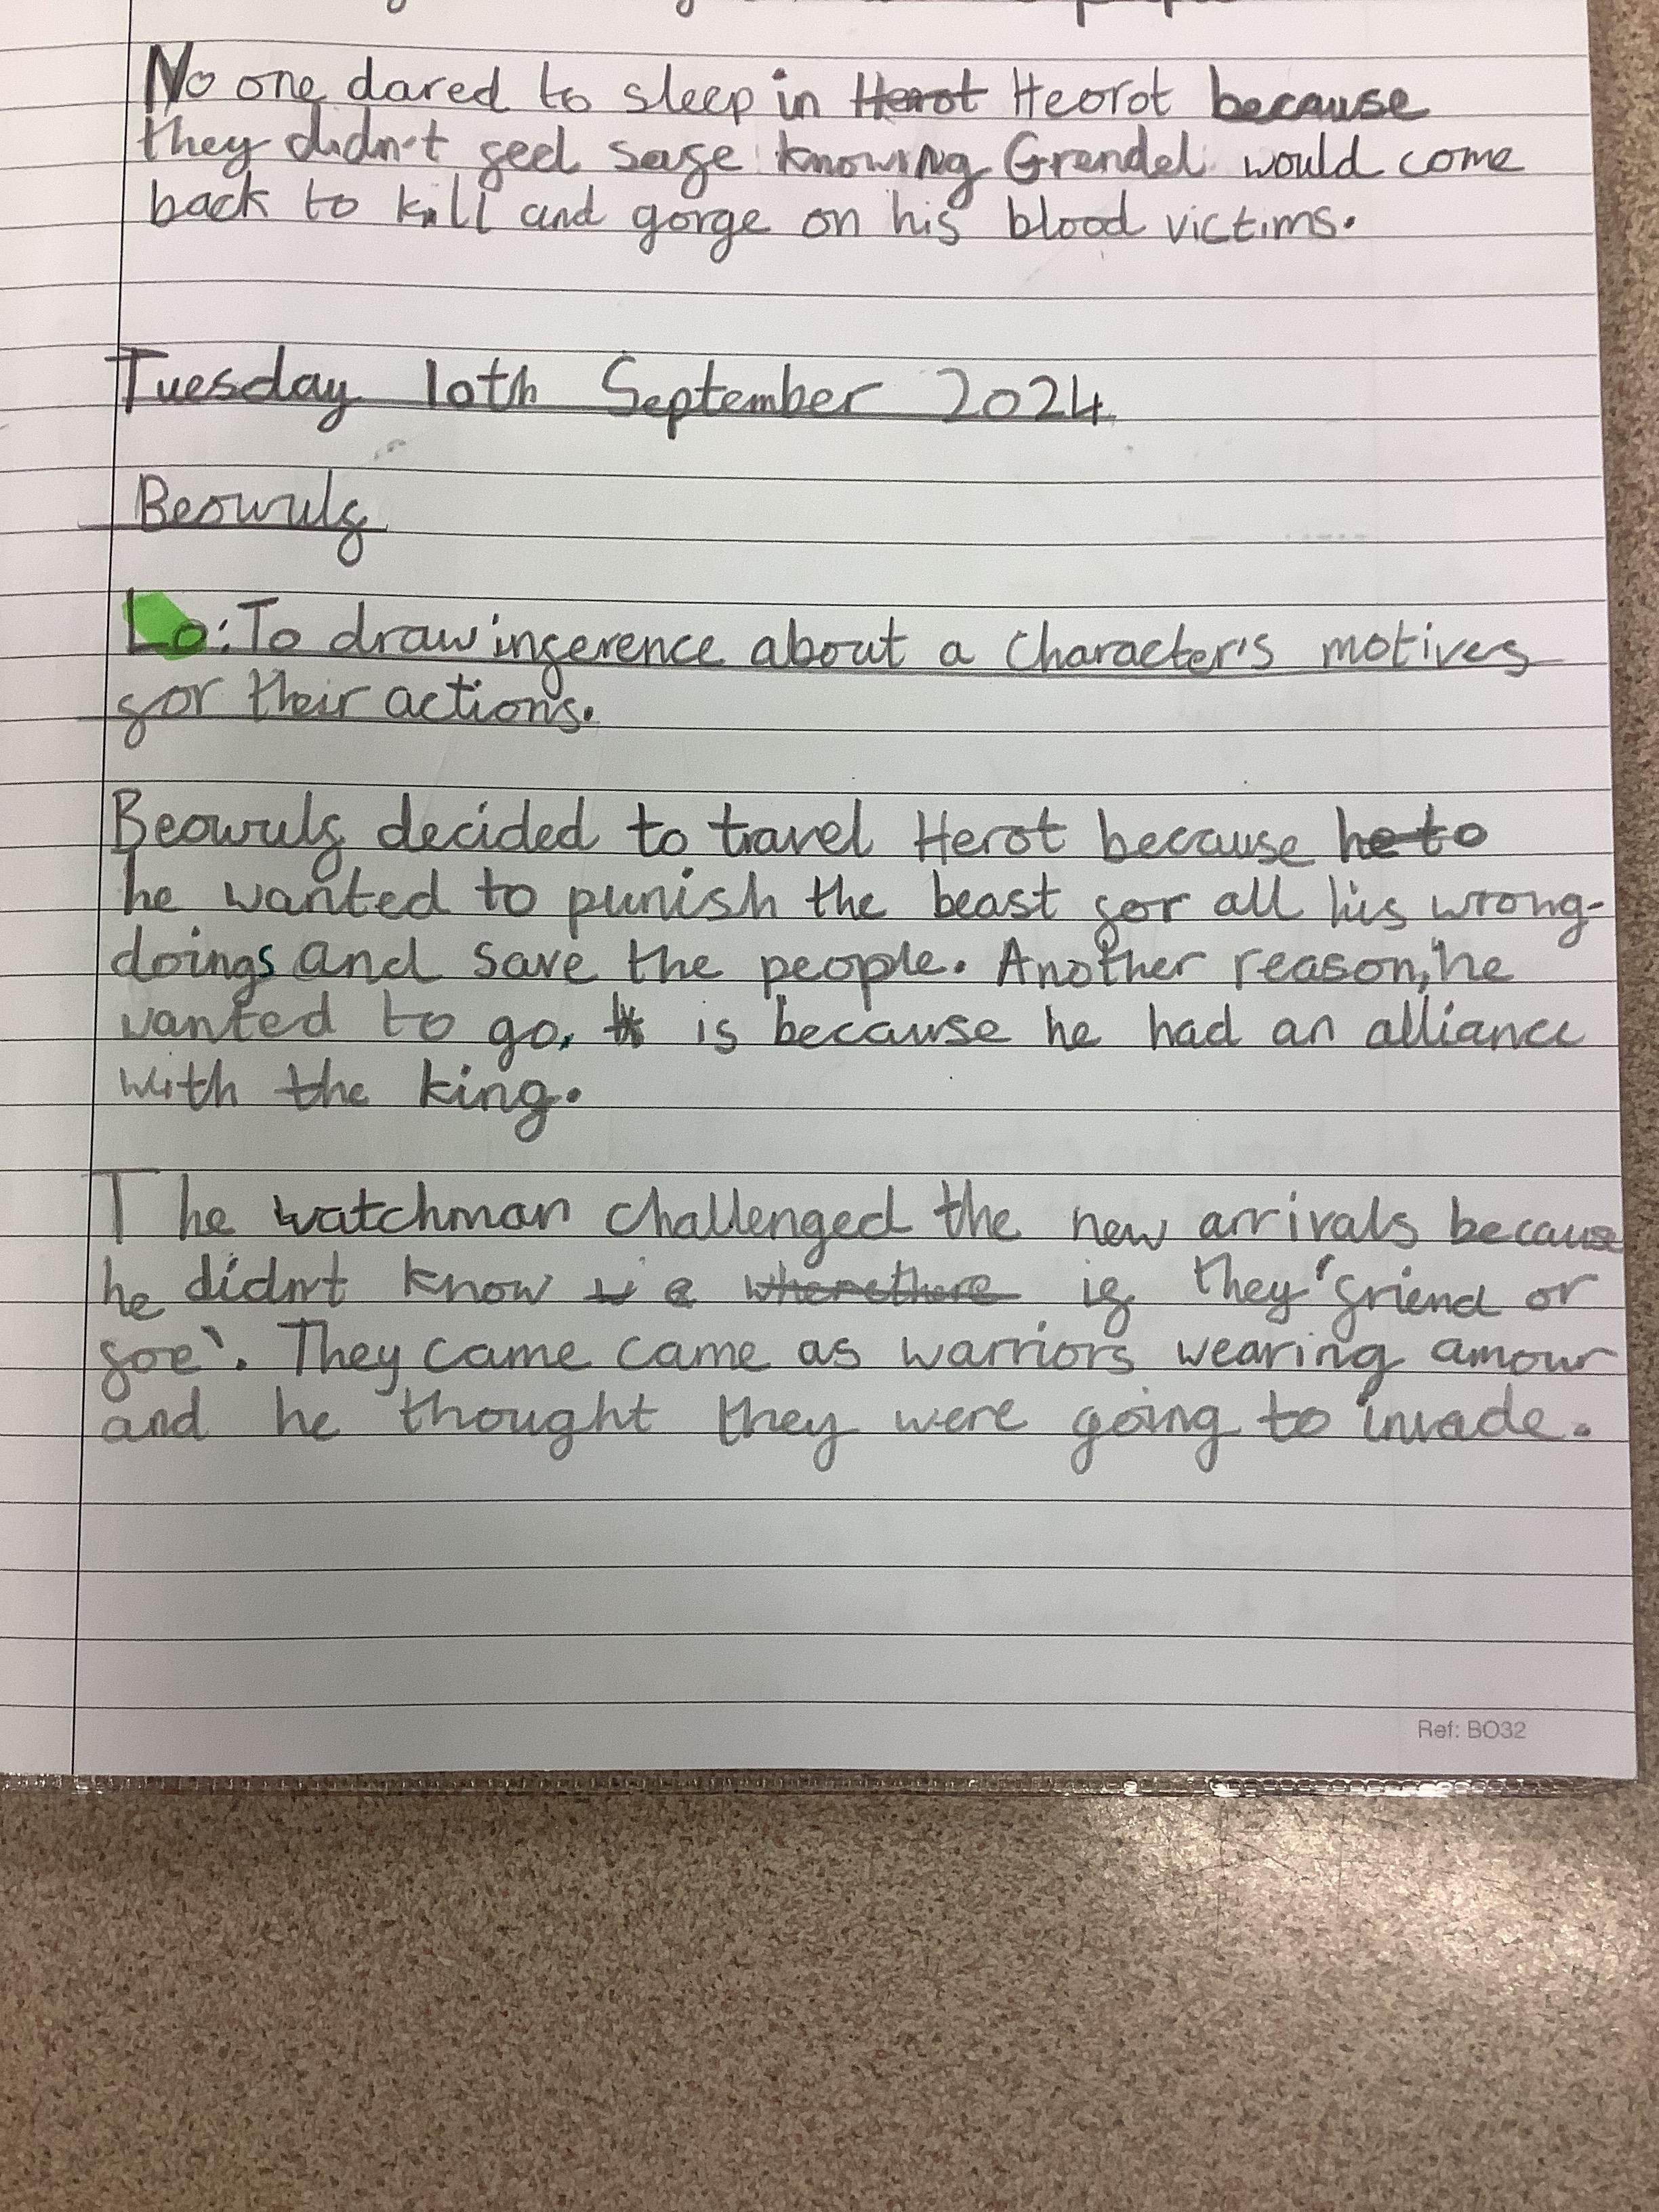 No one dared to sleep in Herot Heorot because
they didn't feel safe knowing Grendel would come
back to kill and gorge on his blood victims.
Tuesday 10th September 2024
Beowulf
Lo: To draw inference about a character's motives
for their actions.
Beowulf decided to travel Herot because he to
he wanted to punish the beast for all his wrong-
doings and save the people. Another reason, he
wanted to go, is because he had an alliance
with the king.
The watchman challenged the new arrivals because
he didn't know if they 'friend or
foe'. They came came as warriors wearing amour
and he thought they were going to invade.
Ref: BO32